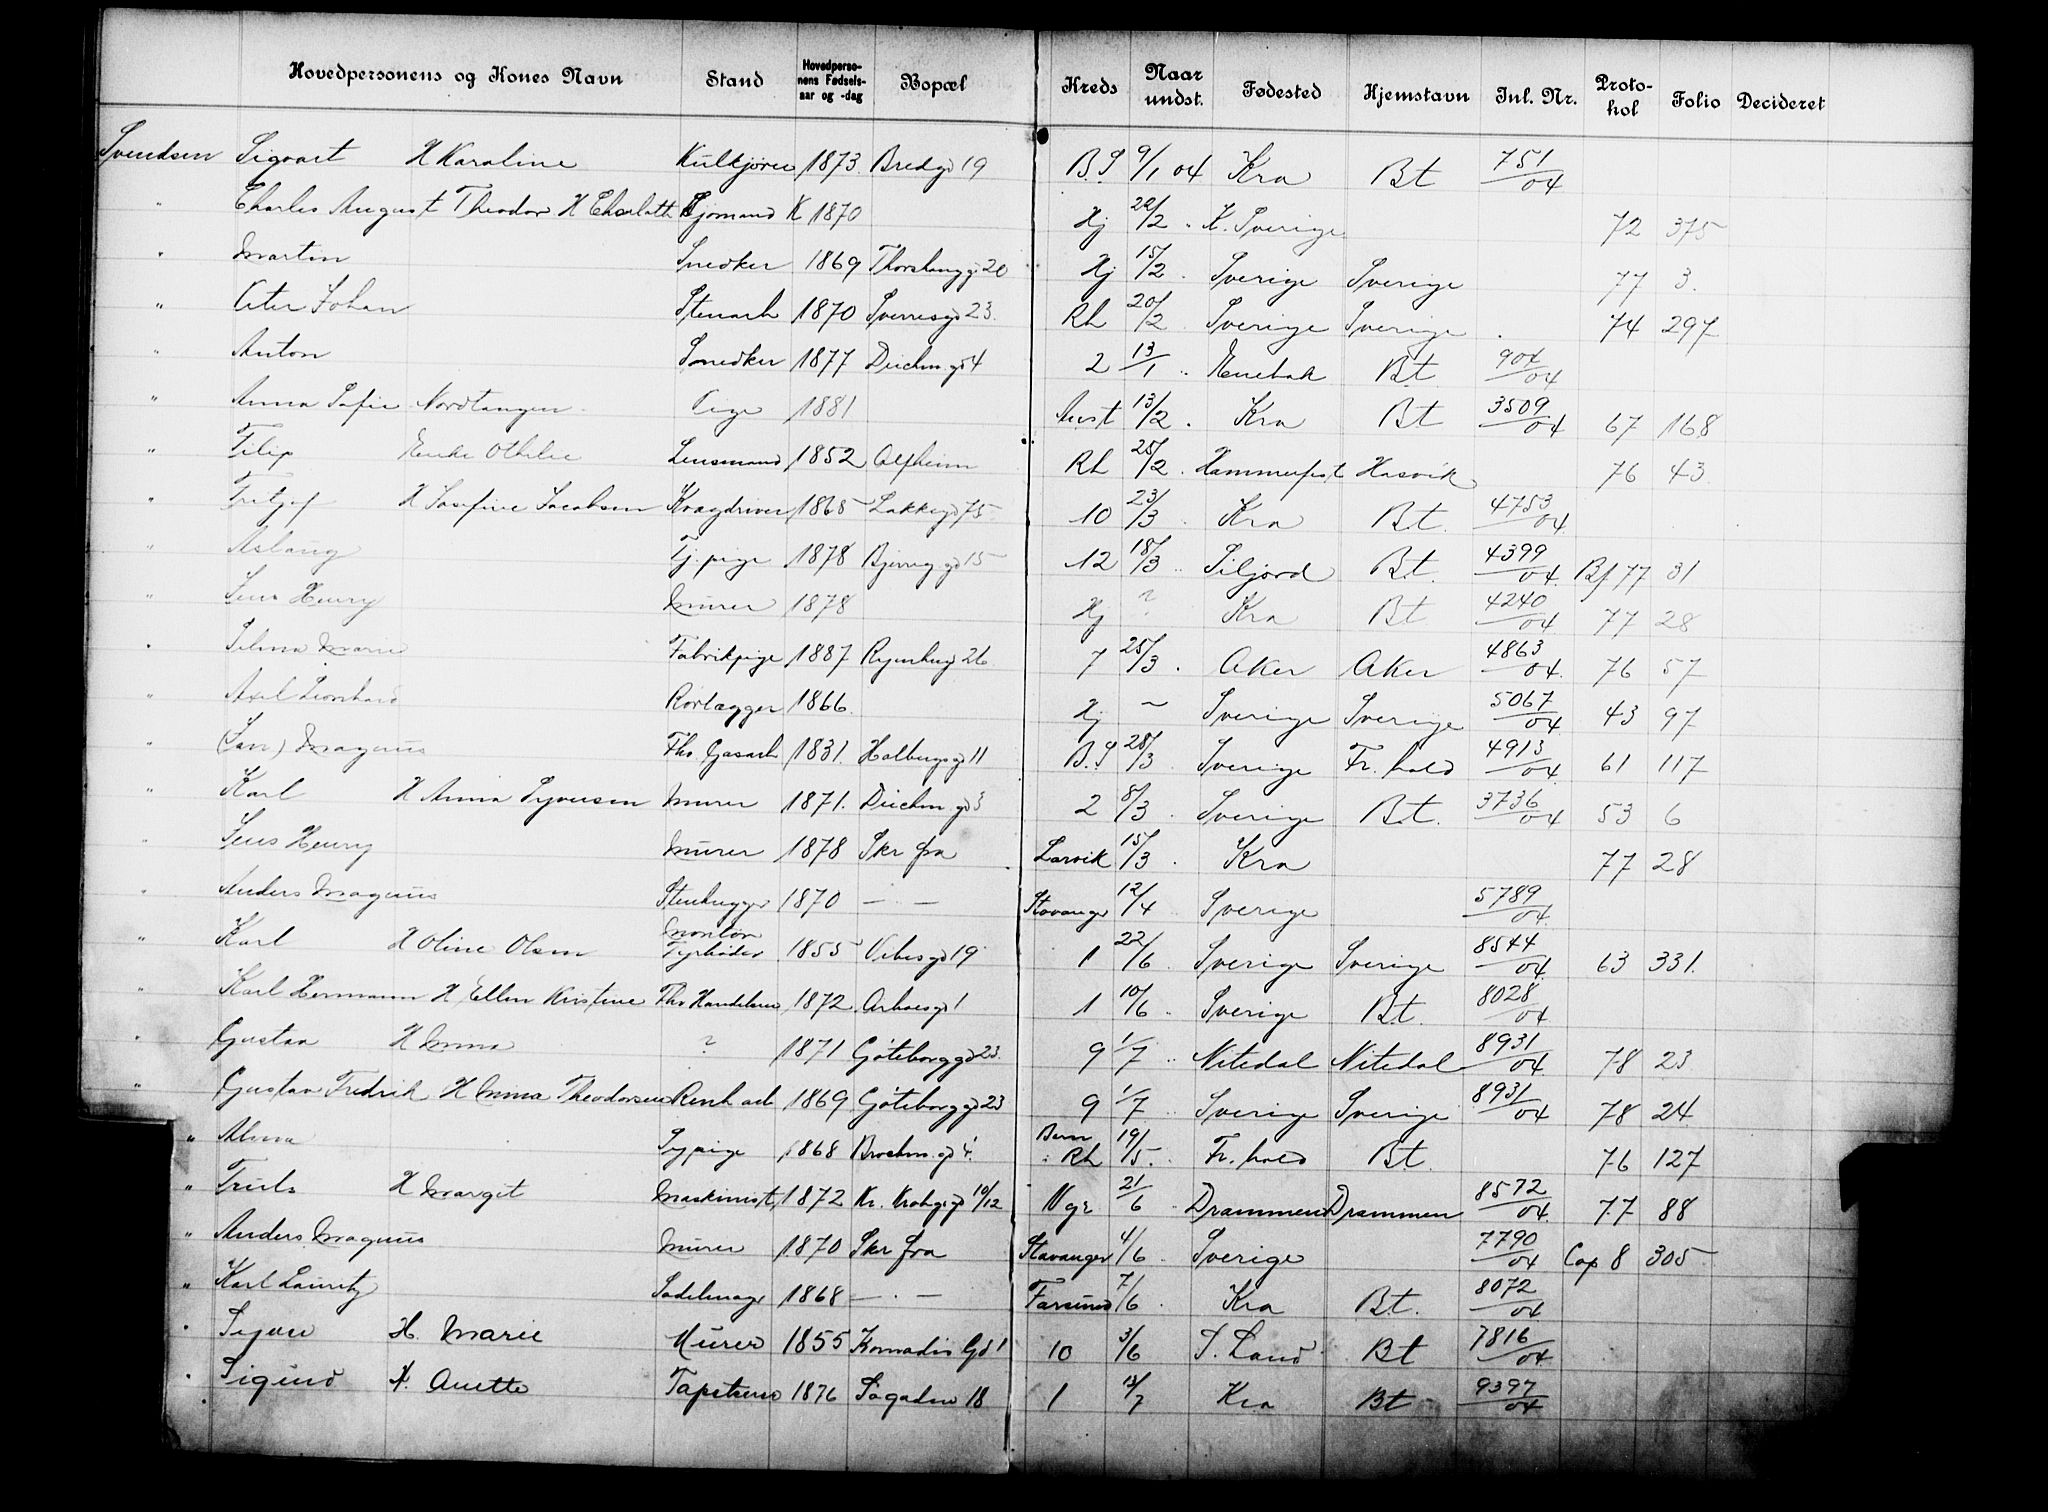 Hovedpersonens og Kones Navn Stand Hovedpersonens Fødselsaar og -dag Bopæl Kreds Naar undst. Fødested Hjemstavn Jnl. Nr. Protokol Folio Decideret
Svendsen Sigvart H Karaline Kulkjører 1873 Bredgd 19 B.S 9/1 04 Kra Bt 751/04
" Charles August Theodor H Charlotte Sjømand K 1870 Hj 22/2 " K. Sverige 72 375
" Martin Snedker 1869 20 Hj 15/2 " Sverige Sverige 77 3
" Peter Johan Stenarb 1870 Sverresgd 23 Rh 20/2 " Sverige Sverige 74 297
" Anton Snedker 1877 Deichm.gd 4 2 13/1 " Enebak Bt 904/04
" Anna Sofie Nordtangen Pige 1881 Aust 13/2 " Kra Bt 3509/04 67 168
" Filip Enke Othilie Lensmand 1852 Alfheim Rh 25/2 " Hammerfest Hasvik 76 43
" Fritjof H Josefine Jacobsen 1865 Lakkegd 75 10 23/3 " Kra Bt. 4753/04
" Aslaug Tj. pige 1878 15 12 18/3 " Siljord Bt. 4399/04 Bf 77 31
" Jens Henry Murer 1878 Hj ? Kra Bt 4240/04 77 28
" Selma Marie Fabrikpige 1887 Ryenbug 26 7 25/3 " Aker Aker 4863/04 76 57
" Axel Leonhard Rørlægger 1866 Hj ~ Sverige Sverige 5067/04 43 97
" (Jan) Magnus Fhv. Gasarb 1831 Holbergsgd 11 B.S 28/3 Sverige Fr. hald 4913/04 61 117
" Karl H Anna Syversen Murer 1871. Deichm.gd 3 2 8/3 " Sverige Bt. 3736/04 53 6
" Jens Henry Murer 1878 Skr fra Larvik 15/3 " Kra 77 28
" Anders Magnus Stenhugger 1870 — " — Stavanger 12/4 " Sverige 5789/04
" Karl H Oline Olsen Montør Fyrbøder 1855 Vibesgd 19 1 22/6 " Sverige Sverige 8544/04 63 331
" Karl Hermann H Ellen Kristine Fhv Handelsm 1872 1 1 10/6 " Sverige Bt. 8028/04
" Gustav H Emma ? 1871 Göteborggd 23 9 1/7 " Nitedal Nitedal 8931/04 78 23
" Gustav Fredrik H Emma Theodorsen Renh arb 1869 Göteborggd 23 9 1/7 " Sverige Sverige 8931/04 78 24
" Alma Sypige 1868 Brochm.gd 4 Bern Rh 19/5 Fr. hald Bt. 76 127
" Truls H Margit Maskinist 1872 Kr. Kroh.gd 10/12 Vgr 21/6 " Drammen Drammen 8572/04 77 88
" Anders Magnus Murer 1870 Skr fra Stavanger 4/6 " Sverige 7790/04 Cop 8 305
" Karl Lauritz Sadelmager 1868 — " — Farsund 7/6 " Kra Bt. 8072/04
" Syver H. Marie Murer 1855 Gd 1 10 3/6 S. Land Bt 7816/04
" Sigurd H. Anette Tapetserer 1876 Søgaden 18 1 Kra Bt 9397/04